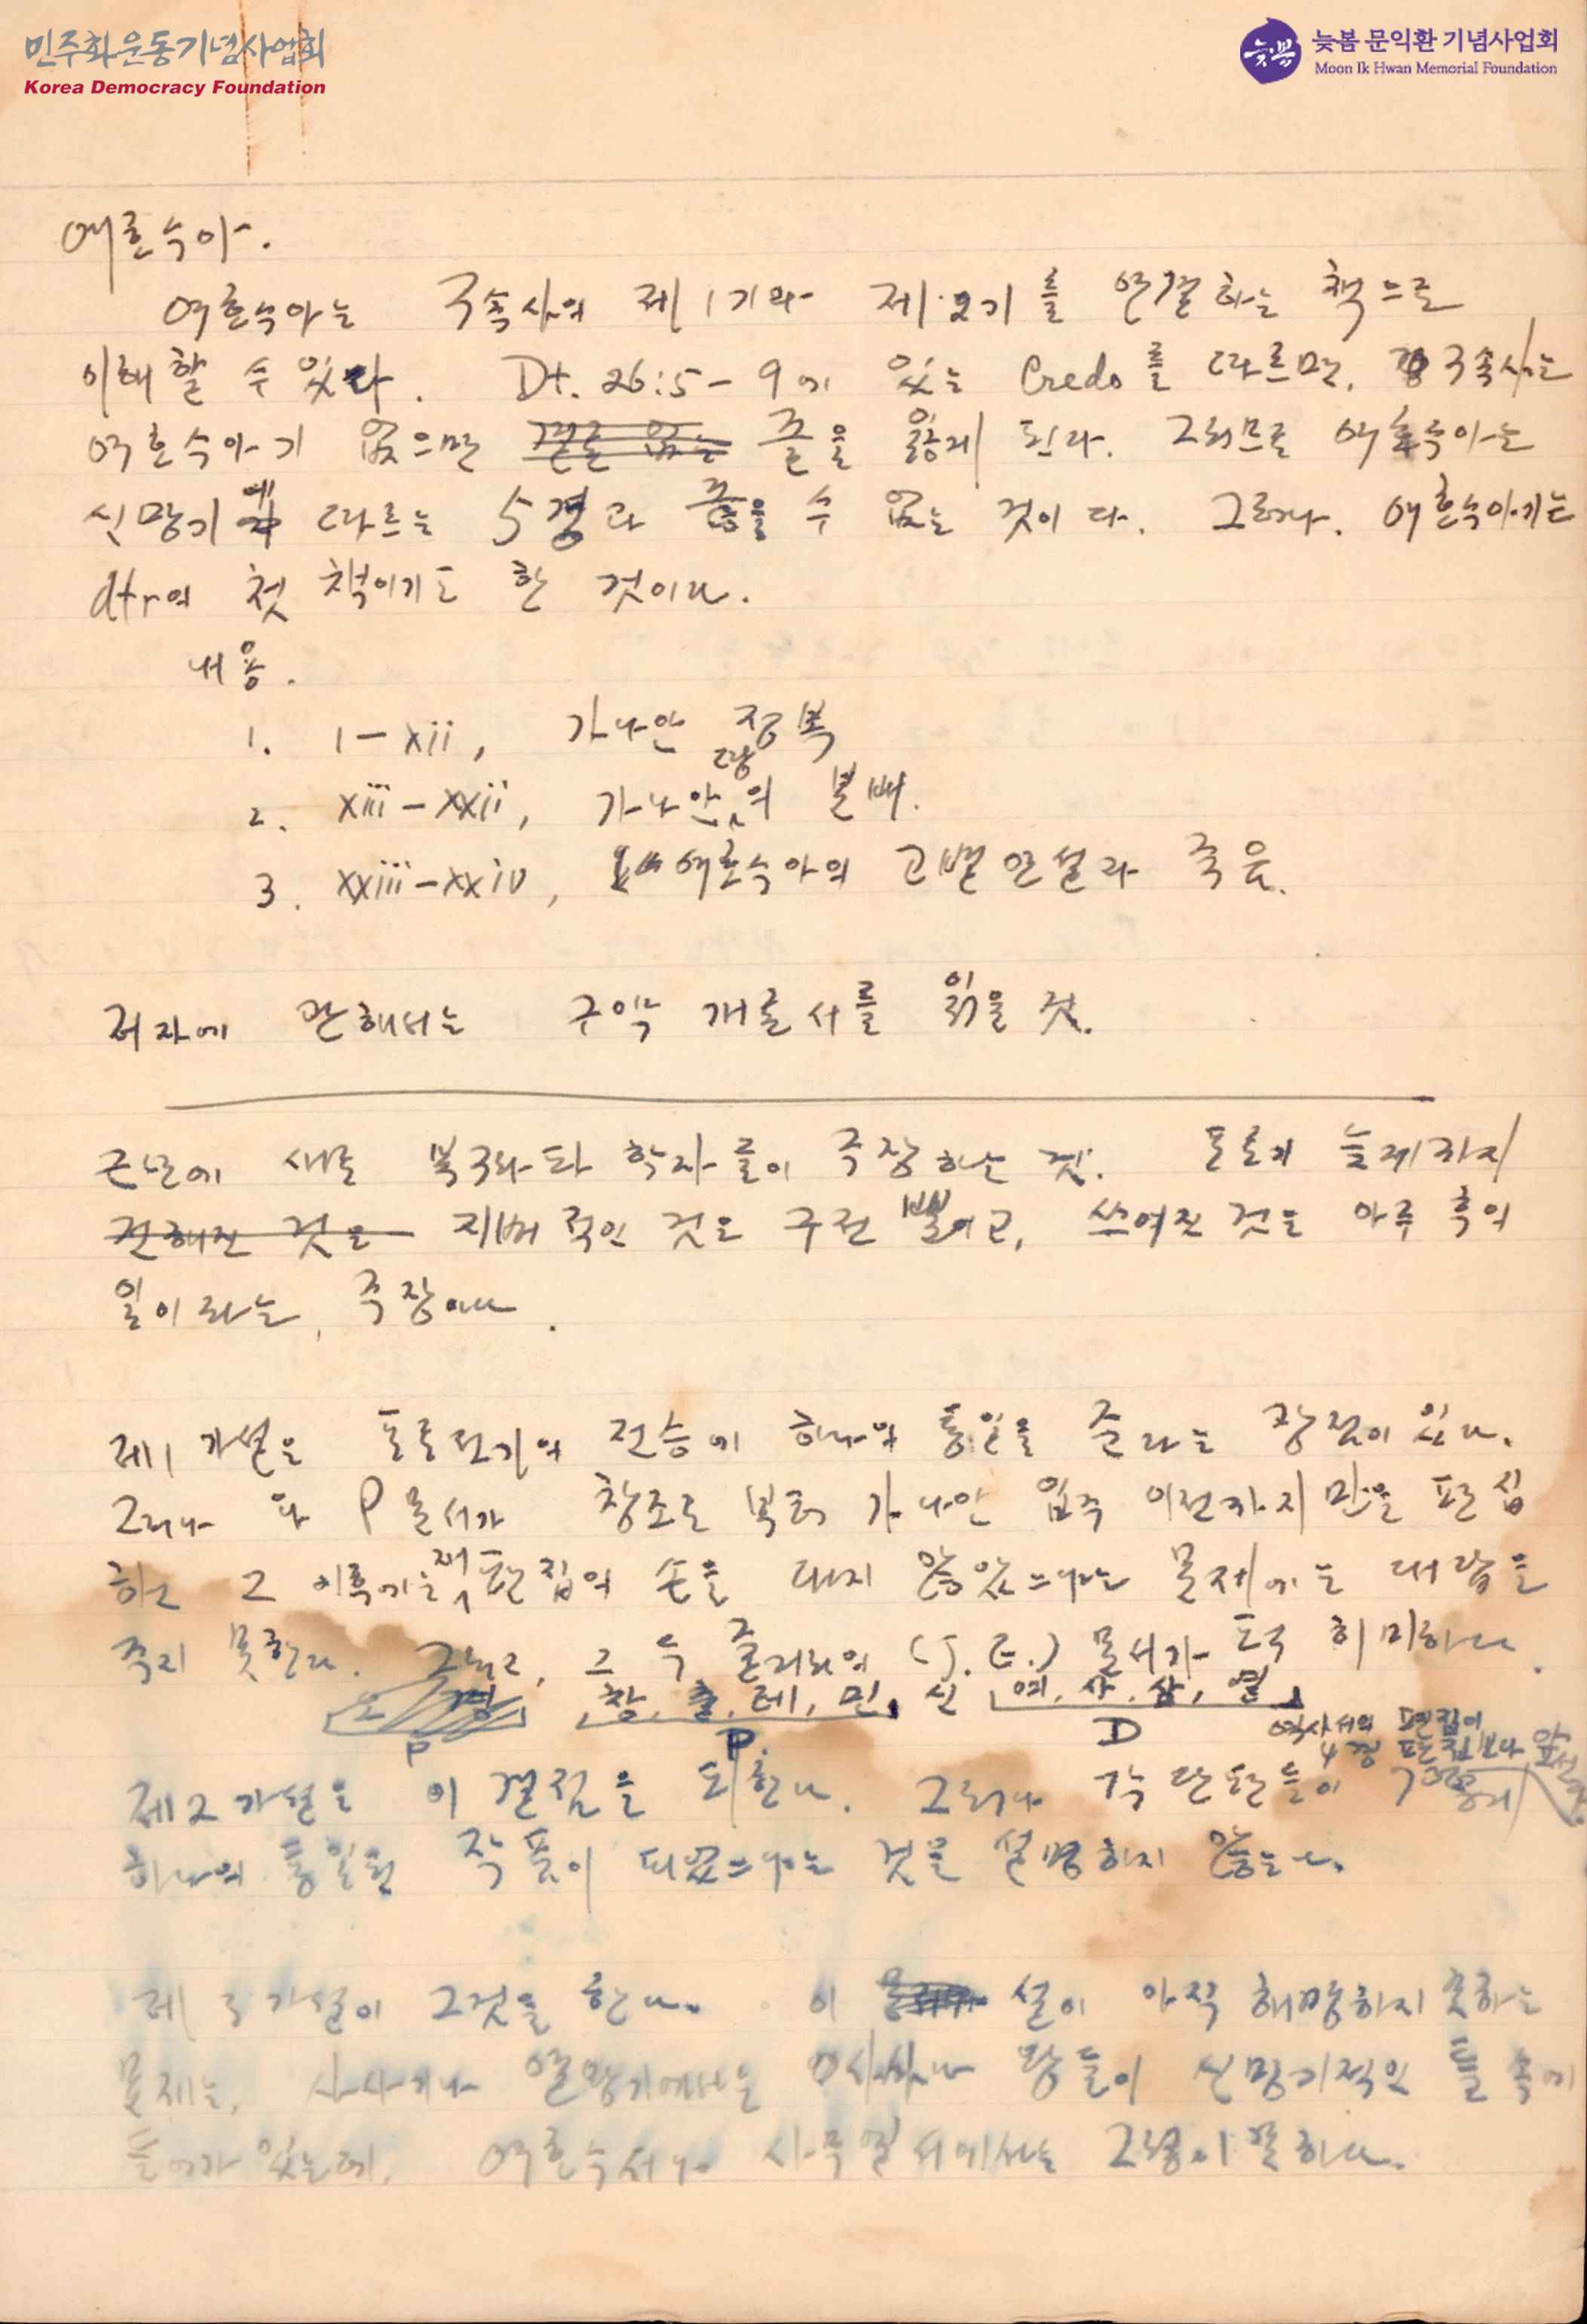 민주화운동기념사업회
Korea Democracy Foundation
늦봄
늦봄 문익환 기념사업회
Moon Ik Hwan Memorial Foundation
여호수아.
여호수아는 구속사의 제1기와 제2기를 연결하는 책으로
이해할 수 있다. Dt. 26:5-9에 있는 Credo를 따르면, 구속사는
여호수아기 없으면 줄을 잃게 된다. 그러므로 여호수아는
신망기에 따르는 5경과 수 없는 것이다. 그러나. 여호수아기는
dtr의 첫 책이기도 한 것이다.
내용.
1. i-xii, 가나안 정복
2. xiii-xxii, 가나안땅의 분배.
3. xxiii-xxiv, 여호수아의 고별연설과 죽음.
저자에 관해서는 구약 개론서를 읽을 것.
근년에 새로 북구와 학자들이 주장하는 것. 포로기 늦게까지
전해진 것은 지배적인 것은 구전뿐이고, 쓰여진 것은 아주 후의
일이라는 주장이다.
제1가설은 포로전기의 전승이 하나의 통일을 준다는 장점이 있다.
그러나 P문서가 창조로부터 가나안 입주 이전까지만을 편집
하고 그 이후에는 편집의 손을 대지 않았느냐는 문제에는 대답을
주지 못한다. 그리고, 그 두 줄거리의 (J. E.) 문서가 희미하다.
창, 출, 레, 민, 신 여, 사, 삼, 열
P P. D
역사서의 편집이
4경 편집보다 앞선다.
제2가설은 이 결점을 피한다. 그러나 각 단편들이
하나의 통일된 작품이 되었느냐는 것을 설명하지 않는다.
제3가설이 그것을 한다. 이 설이 아직 해명하지 못하는
문제는, 사사기나 열왕기에서는 왕들이 신망기적인 틀 속에
들어가 있는데, 여호수서나 사무엘서에서는 그렇지 못하다.